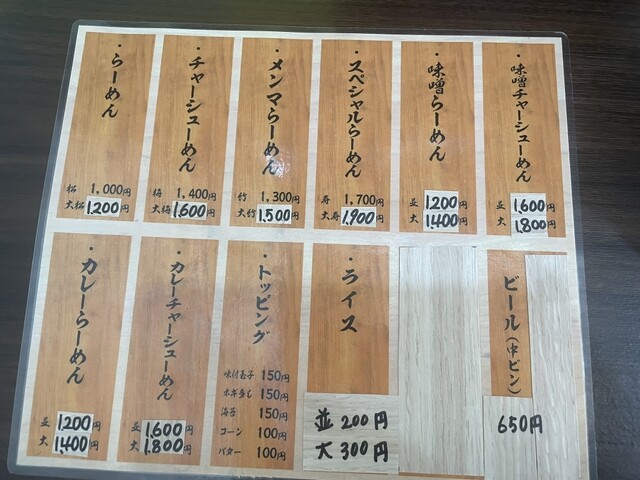 ・らーめん
松 1,000円
大松 1,200円
・チャーシューめん
梅 1,400円
大梅 1,600円
・メンマらーめん
竹 1,300円
大竹 1,500円
・スペシャルらーめん
寿 1,700円
大寿 1,900円
・味噌らーめん
並 1,200円
大 1,400円
・味噌チャーシューめん
並 1,600円
大 1,800円
・カレーらーめん
並 1,200円
大 1,400円
・カレーチャーシューめん
並 1,600円
大 1,800円
・トッピング
味付玉子 150円
ネギ増し 150円
海苔 150円
コーン 100円
バター 100円
・ライス
並 200円
大 300円
ビール(中ビン)
650円